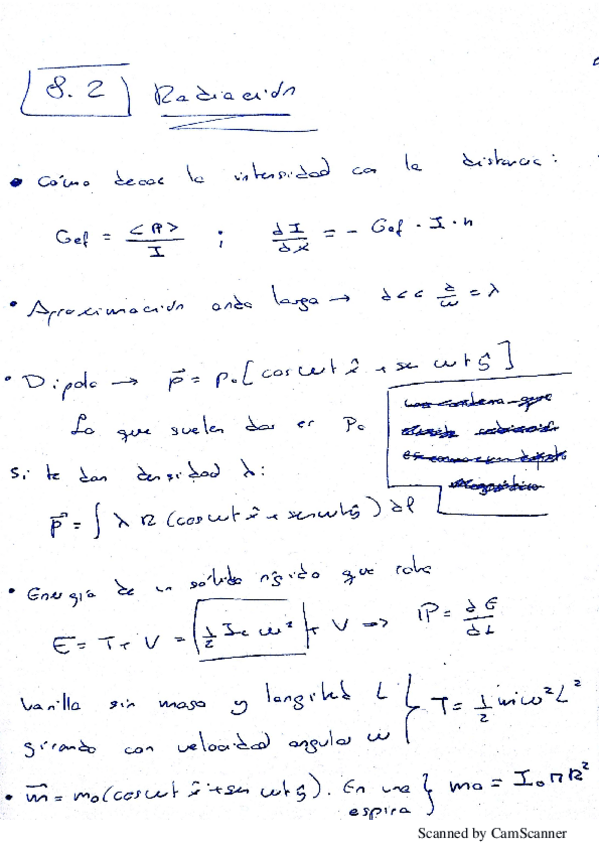 8.2 Radiación
• Cómo decae la intensidad con la distancia:
σef = <P> / I ; dI/dx = - σef · I · n
• Aproximación onda larga → d << c/ω = λ
• Dipolo → p⃗ = p₀ [cos ωt x̂ + sen ωt ŷ]
Lo que suelen dar es p₀
Si te dan densidad λ:
p⃗ = ∫ λ R (cos ωt x̂ + sen ωt ŷ) dl
• Energía de un sólido rígido que rota
E = T + V = (½ I ω²) + V => P = dE/dt
Varilla sin masa y longitud L { T = ½ m ω² L²
girando con velocidad angular ω
• m⃗ = m₀ (cos ωt x̂ + sen ωt ŷ). En una espira } m₀ = I₀ π R²
Scanned by CamScanner